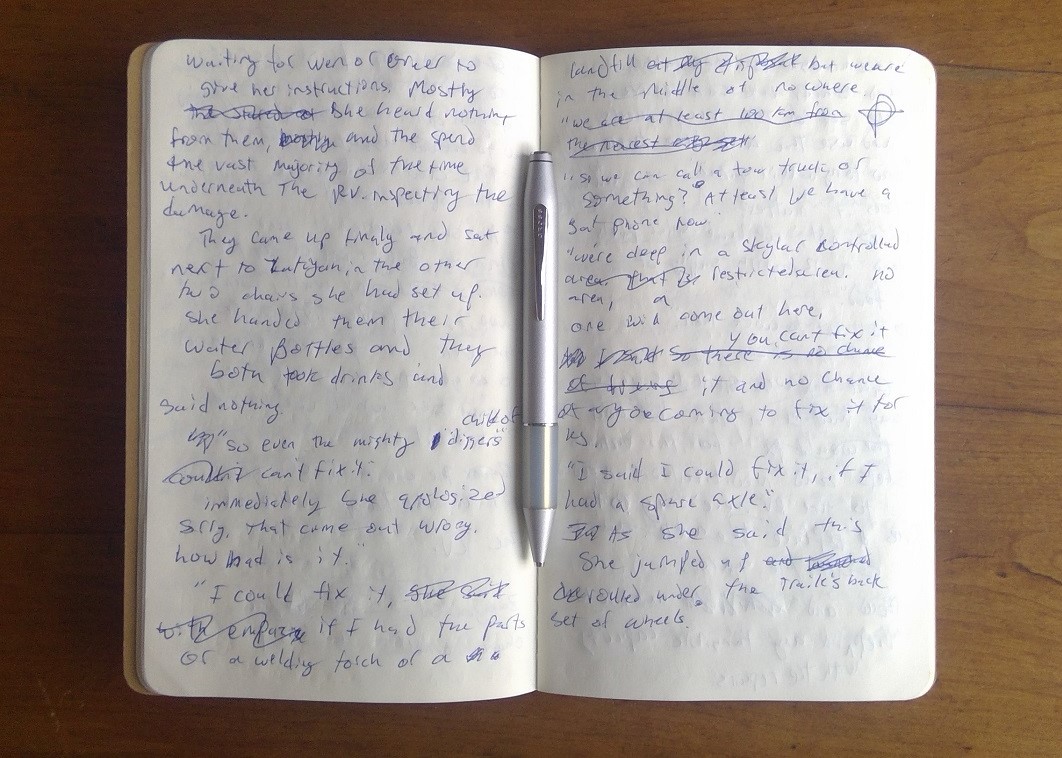 waiting for wen or Greer to
give her instructions. Mostly
she heard nothing
from them, and the spend
the vast majority of the time
underneath the RV. inspecting the
damage.
They came up finaly and sat
next to in the other
two chairs she had set up.
she handed them their
water bottles and they
both took drinks and
said nothing.
child of
"so even the mighty "diggers"
couldn't can't fix it."
immediately she apologized
sorry, that came out wrong.
how bad is it."
"I could fix it, she said
with if I had the parts
or a welding torch or a
CROSS
landfill but we are
in the middle of nowhere.
"we are at least 100 km from
the nearest
"so we can call a tow truck or
something? At least we have a
sat phone now.
"we're deep in a skylar controlled
area, that is restricted area. no
area, a
one will come out here,
you can't fix it
I so there is no chance
of fixing it and no chance
of anyone coming to fix it for
us.
"I said I could fix it, if I
had a spare axle."
As she said this
she jumped up and
rolled under the Traile's back
set of wheels.